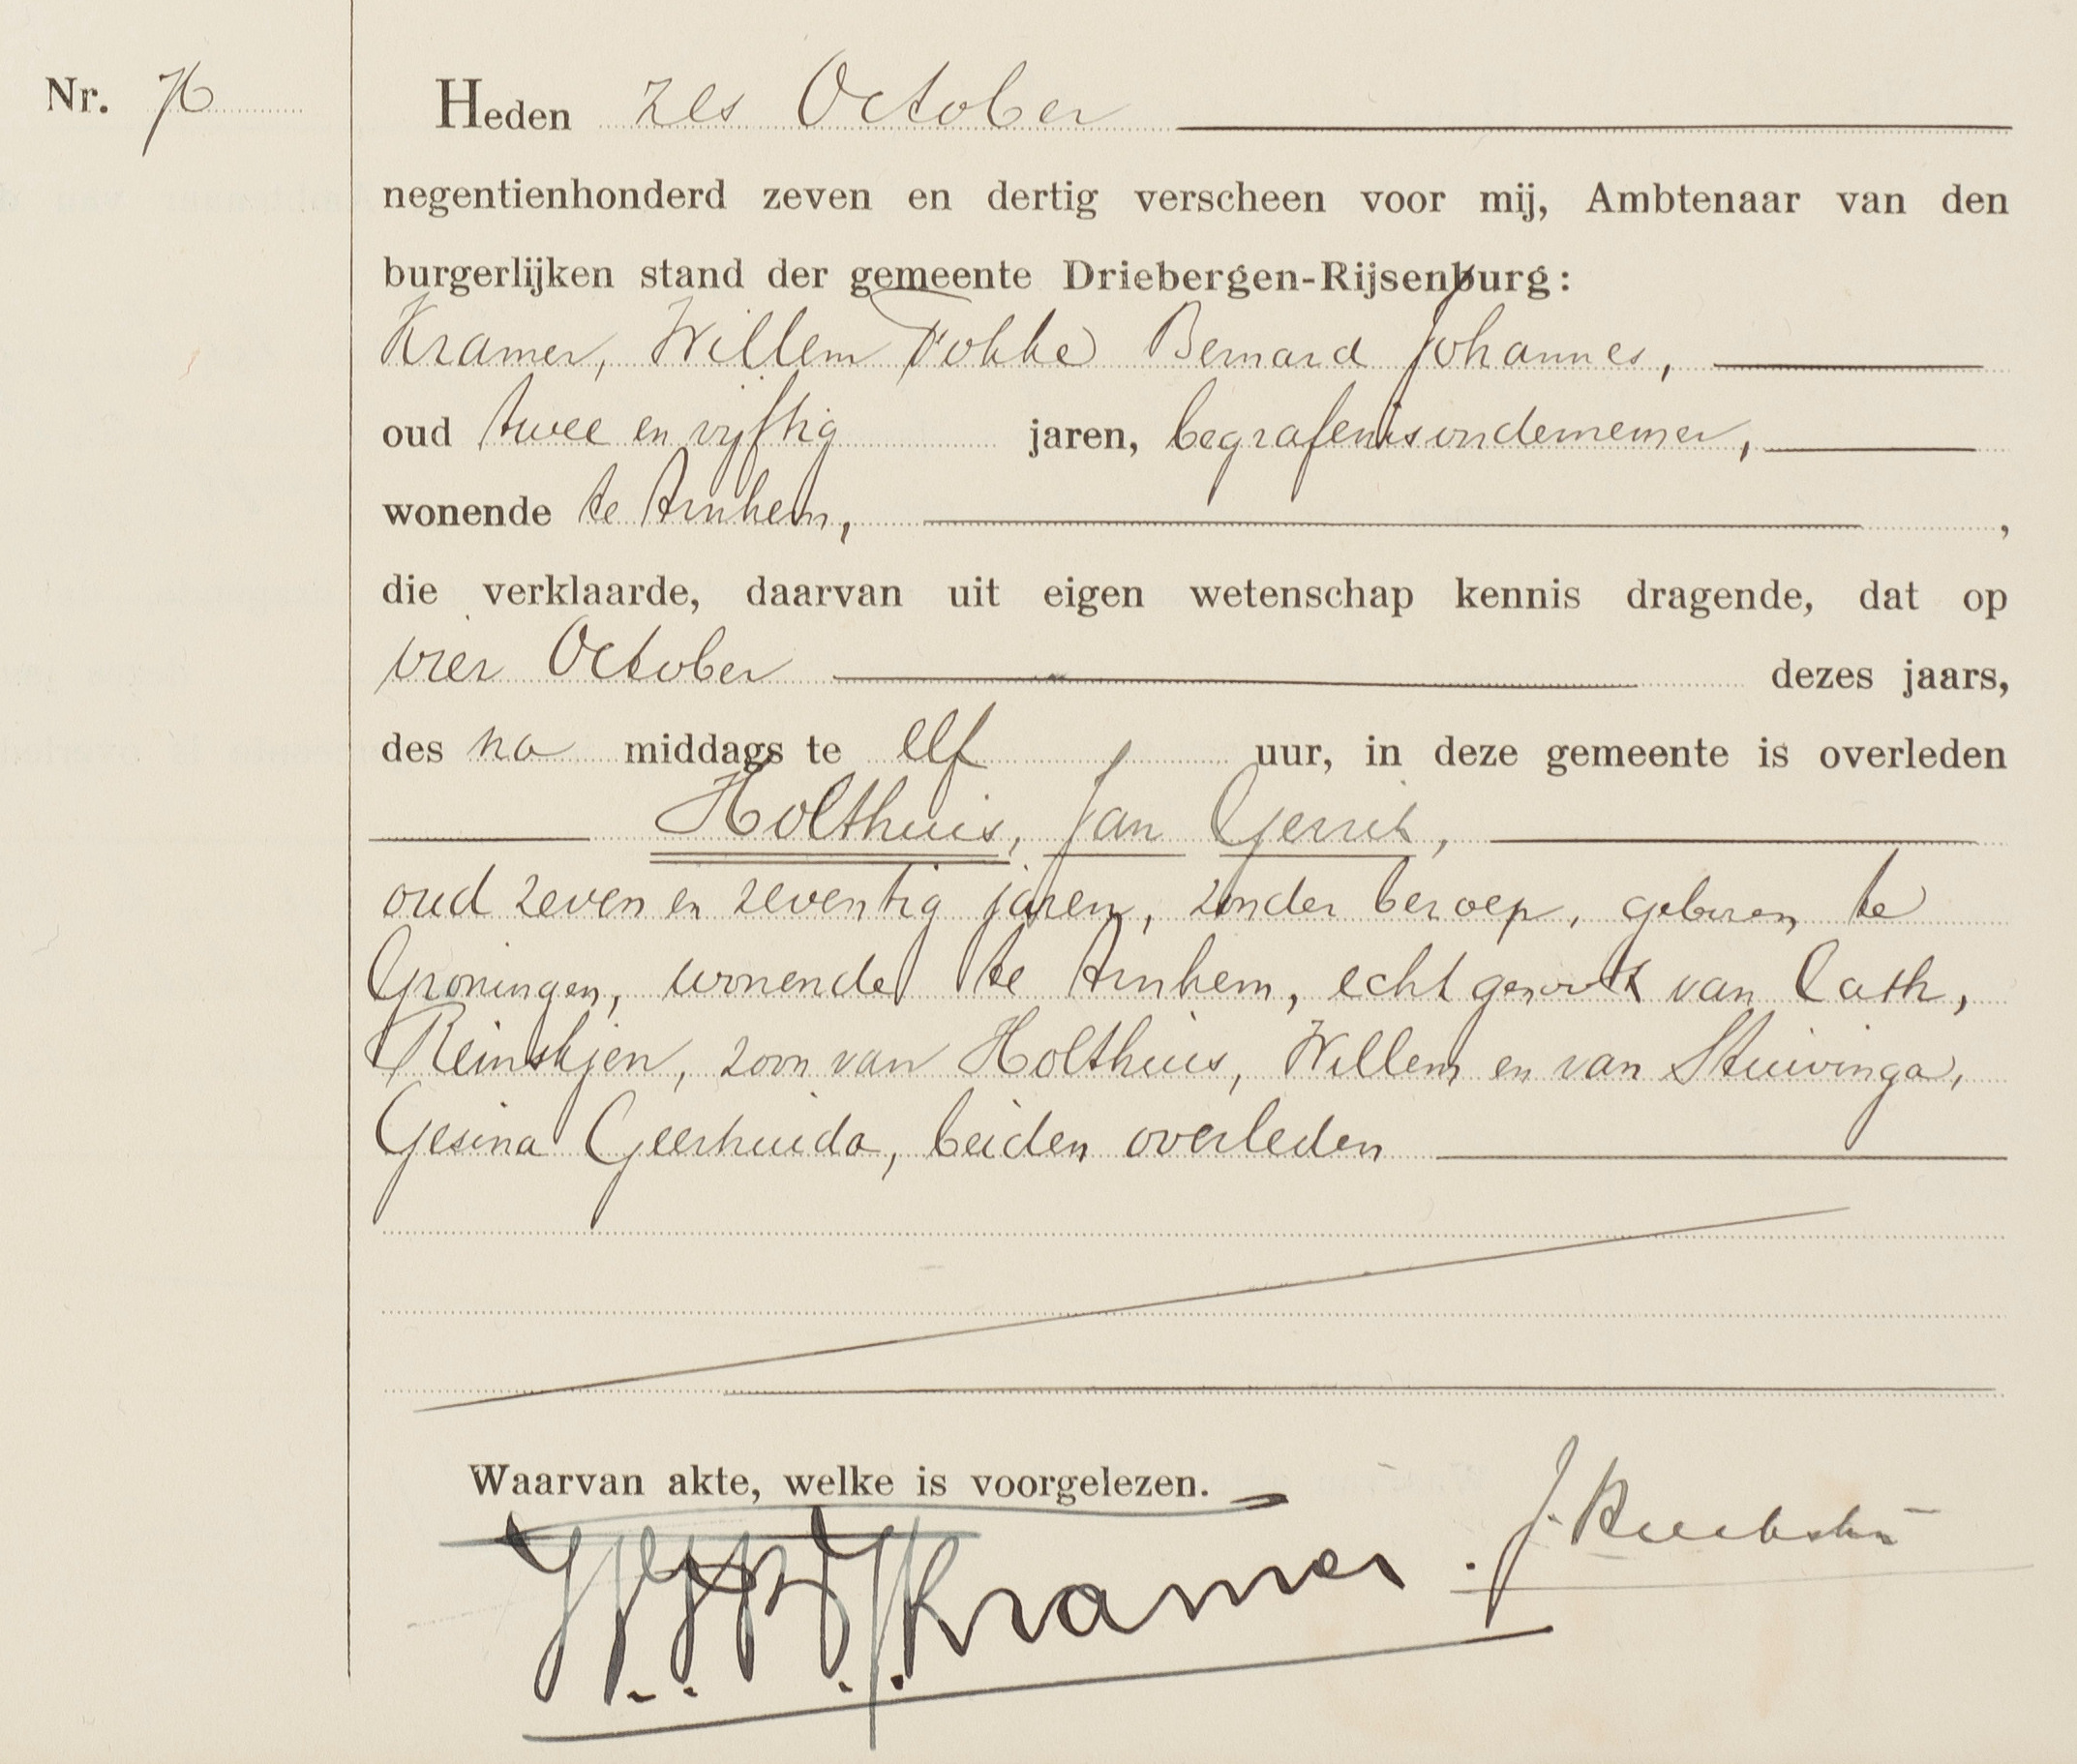 Nr. 76
Heden zes October
negentienhonderd zeven en dertig verscheen voor mij, Ambtenaar van den
burgerlijken stand der gemeente Driebergen-Rijsenburg:
Kramer, Willem Fokke Bernard Johannes,
oud twee en vijftig jaren, begrafenisondernemer,
wonende te Arnhem, ,
die verklaarde, daarvan uit eigen wetenschap kennis dragende, dat op
vier October dezes jaars,
des na middags te elf uur, in deze gemeente is overleden
Holthuis, Jan Gerrit,
oud zeven en zeventig jaren, zonder beroep, geboren te
Groningen, wonende te Arnhem, echtgenoot van Cath,
Reinskjen, zoon van Holthuis, Willem en van Stuivinga,
Gesina Geerhuida, beiden overleden
Waarvan akte, welke is voorgelezen.
Kramer. J.